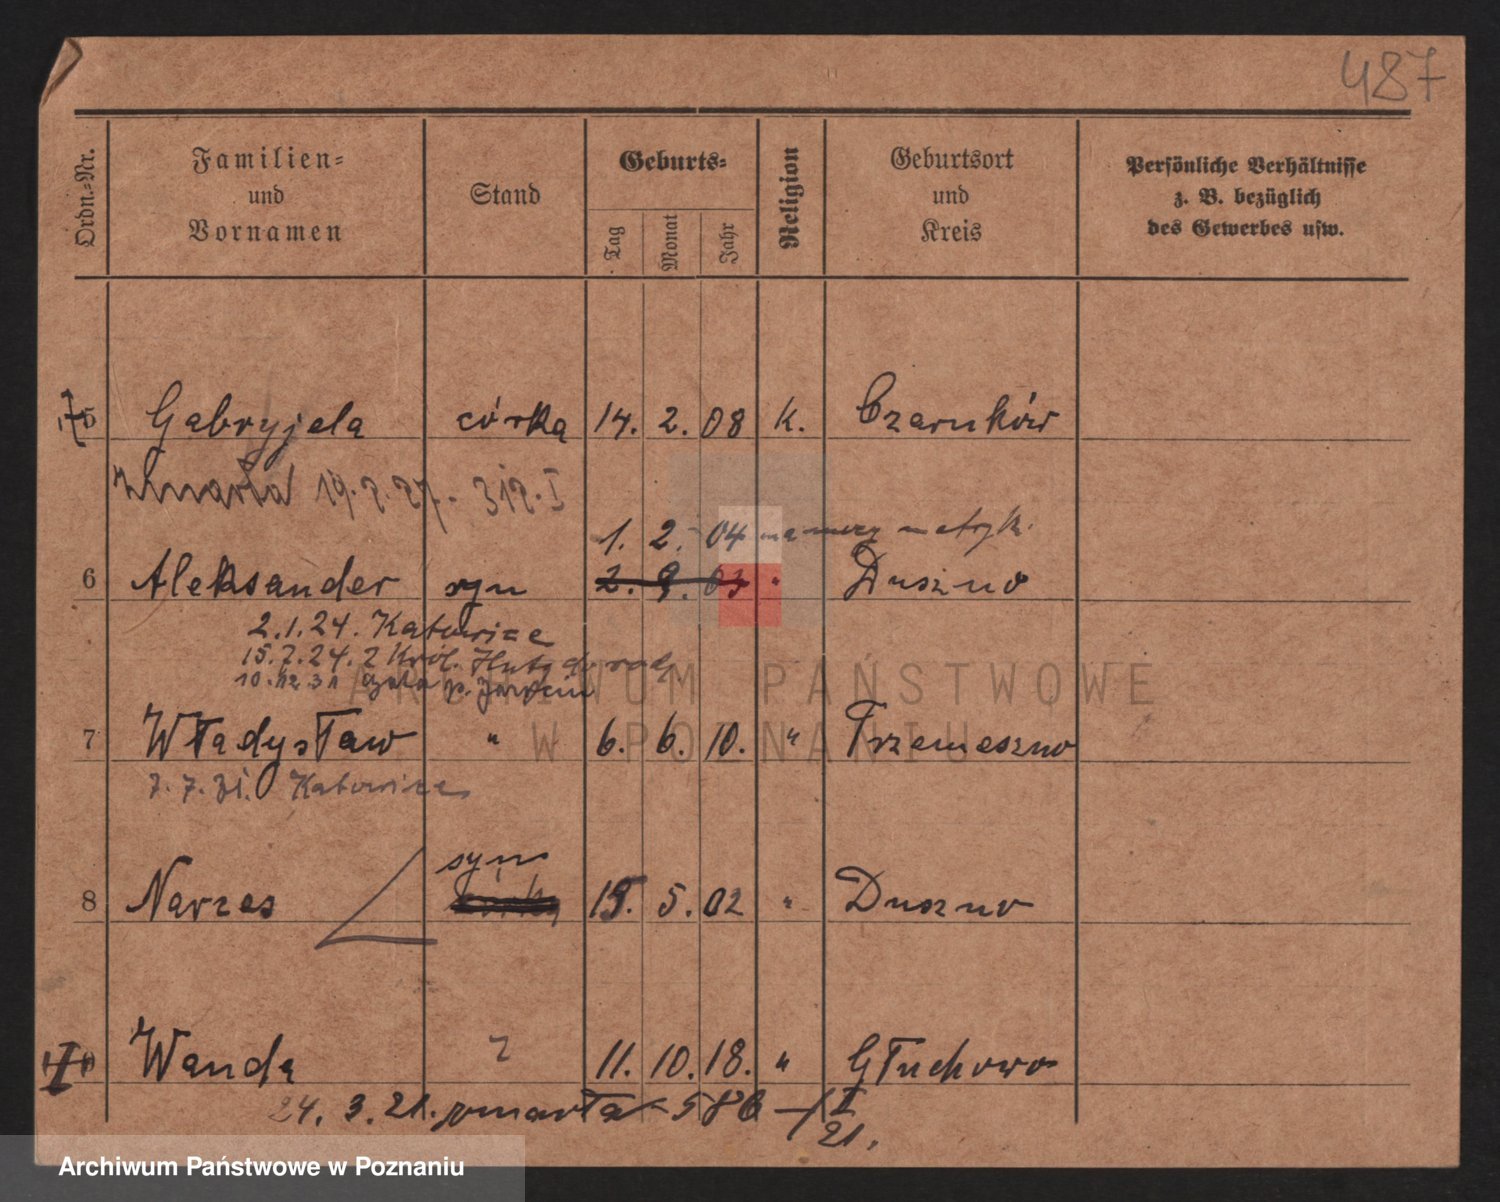 487
Ordn.-Nr. Familien- und Vornamen Stand Geburts- Tag Monat Jahr Religion Geburtsort und Kreis Persönliche Verhältnisse z. B. bezüglich des Gewerbes usw.
5 Gabryjela córka 14. 2. 08 k. Czarnków
zmarła 19. 2. 27. 312. I
1. 2. 04 na mocy metryk.
6 Aleksander syn 2. 9. 03 " Duszno
2.1.24. Katowice
15.7.24. z Król. Huty
10.12.31 p. Jarocin
7 Władysław " 6. 6. 10. " Trzemeszno
7.7.31. Katowice
syn
8 Narzes 15. 5. 02 " Duszno
Wanda 11. 10. 18. " Głuchowo
24. 3. 21. zmarła 586 - I
21.
ARCHIWUM PAŃSTWOWE
W POZNANIU
Archiwum Państwowe w Poznaniu